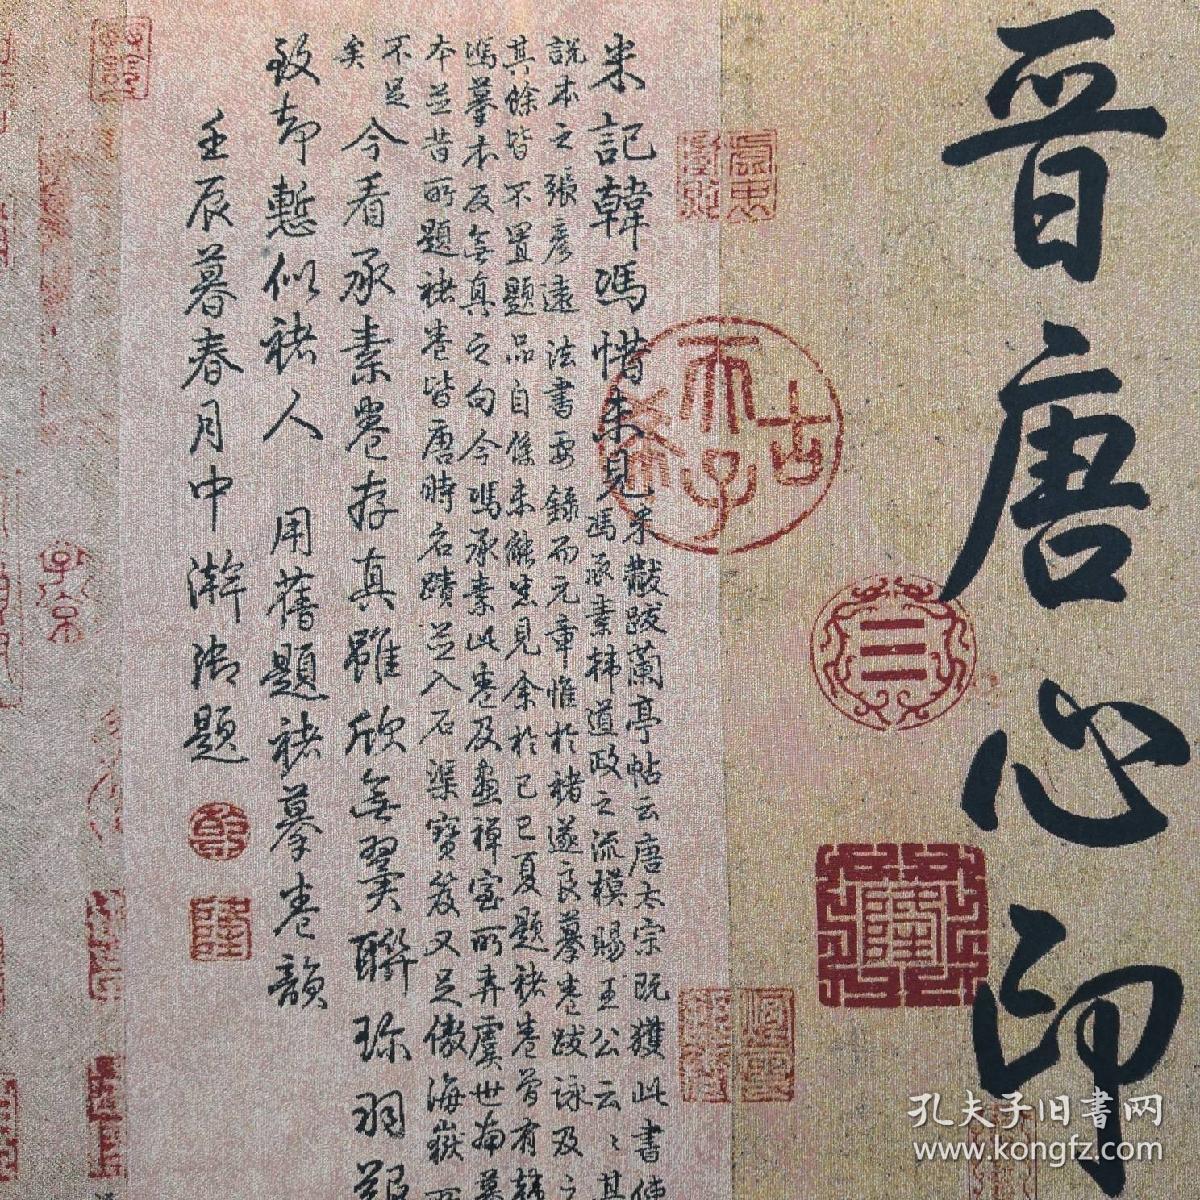 晋唐心印
米記韓馮惜未見
米黻跋蘭亭帖云唐太宗既獲此書使
馮承素韓道政之流模賜王公云云其
說本之張彥遠法書要錄而元章惟於褚遂良摹卷跋詠及之
其餘皆不置題品自係未能悉見余於己巳夏題褚卷曾有韓
馮摹本及無真之句今馮承素此卷及畫禪室所弆虞世南摹
本並昔所題褚卷皆唐時名蹟並入石渠寶笈又足傲海嶽所
不足
矣
今看承素卷存真雖欣無翼聯珎羽
致却慙似褚人 用舊題褚摹卷韻
壬辰暮春月中澣御題
乾
隆
古
希
天子
三
孔夫子旧书网
www.kongfz.com